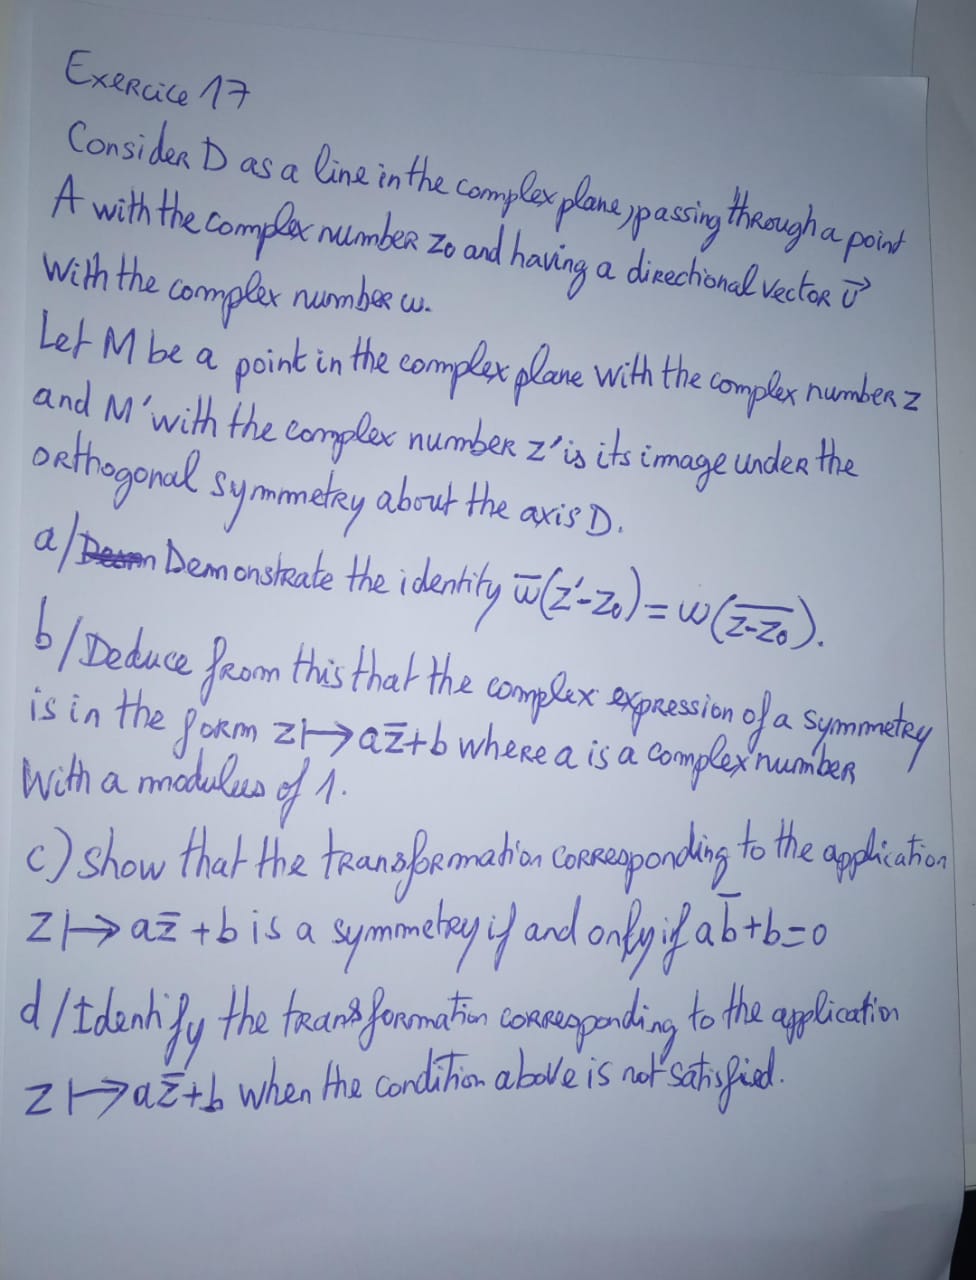 Exercice 17
Consider D as a line in the complex plane, passing through a point
A with the complex number z₀ and having a directional vector U⃗
With the complex number w.
Let M be a point in the complex plane with the complex number z
and M' with the complex number z' is its image under the
orthogonal symmetry about the axis D.
a/ Demonstrate the identity w̅(z'-z₀) = w(\overline{z-z₀}).
b/ Deduce from this that the complex expression of a symmetry
is in the form z ↦ az̅+b where a is a complex number
With a modulus of 1.
c) show that the transformation corresponding to the application
z ↦ az̅ +b is a symmetry if and only if ab̅+b=0
d/ Identify the transformation corresponding to the application
z ↦ az̅+b when the condition above is not satisfied.